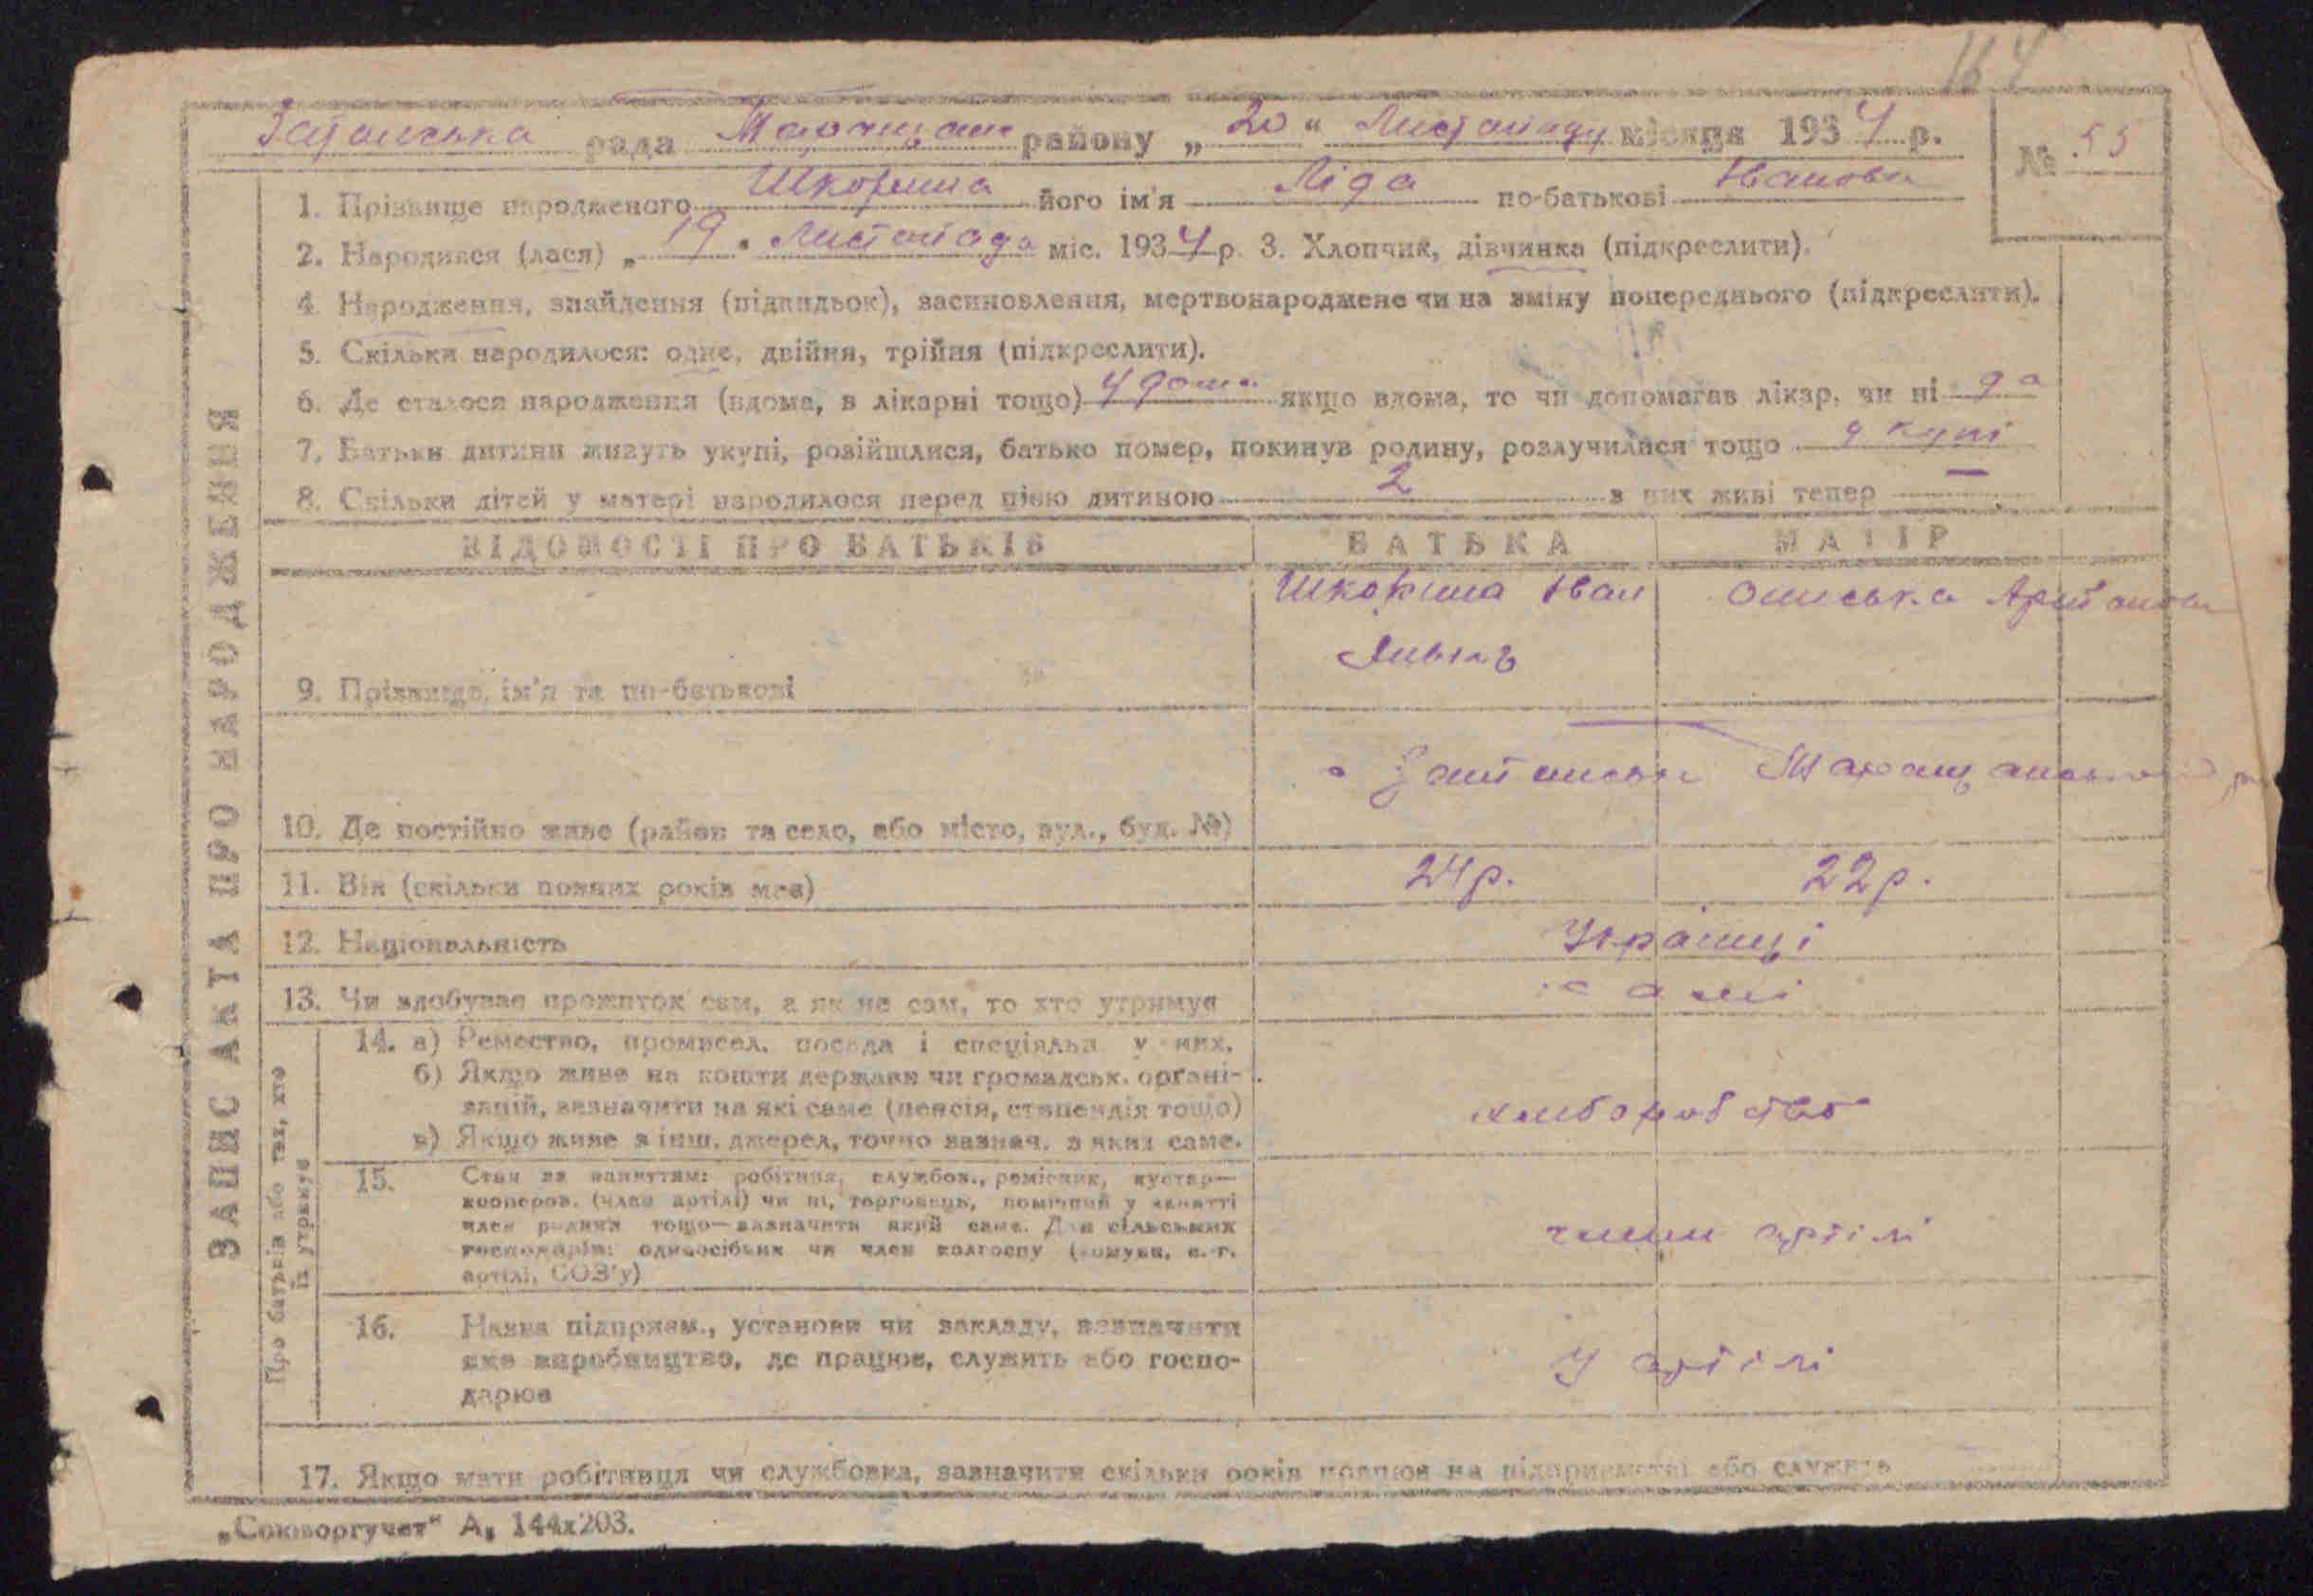 164
рада Таращан району „ 20 " Листопаду місяця 1934 р.
№ 55
1. Прізвище народженого Шкорина його ім'я Ліда по-батькові Іванова
2. Народився (лася) „ 19 " Листопада міс. 1934 р. 3. Хлопчик, дівчинка (підкреслити).
4. Народження, знайдення (підкидьок), засиновлення, мертвонароджене чи на зміну попереднього (підкреслити).
5. Скільки народилося: одне, двійня, трійня (підкреслити).
6. Де сталося народження (вдома, в лікарні тощо) у дома якщо вдома, то чи допомагав лікар, чи ні да
7. Батьки дитини живуть укупі, розійшлися, батько помер, покинув родину, розлучилися тощо у купі
8. Скільки дітей у матері народилося перед цією дитиною 2 з них живі тепер —
ЗАПИС АКТА ПРО НАРОДЖЕННЯ
ВІДОМОСТІ ПРО БАТЬКІВ БАТЬКА МАТІР
Шкорина Іван Ониська
9. Прізвище, ім'я та по-батькові
10. Де постійно живе (район та село, або місто, вул., буд. №)
11. Вік (скільки повних років має) 24р. 22р.
12. Національність Українці
13. Чи здобуває прожиток сам, а як не сам, то хто утримує самі
Про батьків або тих, хто їх утримує
14. а) Ремество, промисел, посада і спеціяльн. у них.
б) Якщо живе на кошти держави чи громадськ. орґані-
зацій, зазначити на які саме (пенсія, стипендія тощо)
в) Якщо живе з інш. джерел, точно зазнач. з яких саме.
хліборобство
15. Стан за заняттям: робітник, службов., ремісник, кустар—
кооперов. (член артілі) чи ні, торговець, помічний у занятті
член родини тощо—зазначити який саме. Для сільських
господарів: одноосібник чи член колгоспу (комуни, с.-г.
артілі, СОЗ'у)
члени артілі
16. Назва підприєм., установи чи закладу, зазначити
яке виробництво, де працює, служить або госпо-
дарює
У артілі
17. Якщо мати робітниця чи службовка, зазначити скільки років працює на підприємстві або служить
„Союзоргучет" А₅ 144х203.